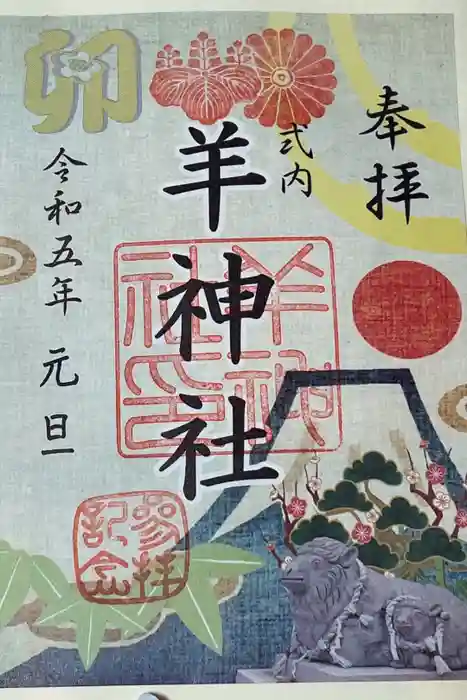 奉拝
式内
羊神社
卯
令和五年 元旦
羊神社印
参拝記念